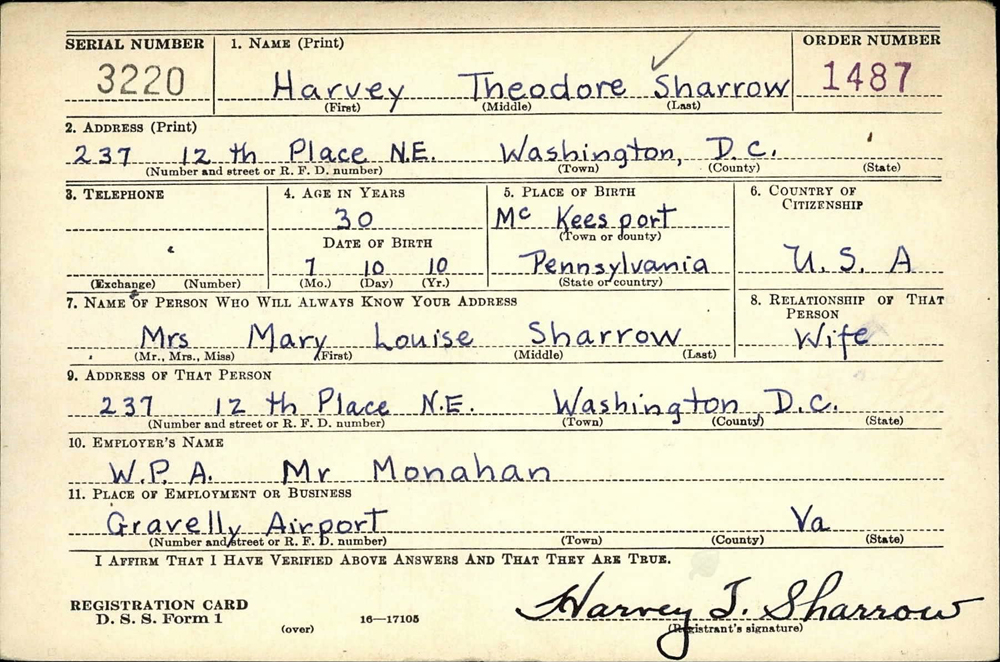 SERIAL NUMBER 1. NAME (Print) ORDER NUMBER
3220 Harvey Theodore Sharrow 1487
(First) (Middle) (Last)
2. ADDRESS (Print)
237 12 th Place N.E. Washington, D.C.
(Number and street or R. F. D. number) (Town) (County) (State)
3. TELEPHONE 4. AGE IN YEARS 5. PLACE OF BIRTH 6. COUNTRY OF CITIZENSHIP
30 Mc Keesport
DATE OF BIRTH (Town or county)
7 10 10 Pennsylvania U. S. A
(Exchange) (Number) (Mo.) (Day) (Yr.) (State or country)
7. NAME OF PERSON WHO WILL ALWAYS KNOW YOUR ADDRESS 8. RELATIONSHIP OF THAT PERSON
Mrs Mary Louise Sharrow Wife
(Mr., Mrs., Miss) (First) (Middle) (Last)
9. ADDRESS OF THAT PERSON
237 12 th Place N.E. Washington, D.C.
(Number and street or R. F. D. number) (Town) (County) (State)
10. EMPLOYER'S NAME
W.P.A. Mr Monahan
11. PLACE OF EMPLOYMENT OR BUSINESS
Gravelly Airport Va
(Number and street or R. F. D. number) (Town) (County) (State)
I AFFIRM THAT I HAVE VERIFIED ABOVE ANSWERS AND THAT THEY ARE TRUE.
REGISTRATION CARD Harvey T. Sharrow
D. S. S. Form 1 (over) 16—17105 (Registrant's signature)